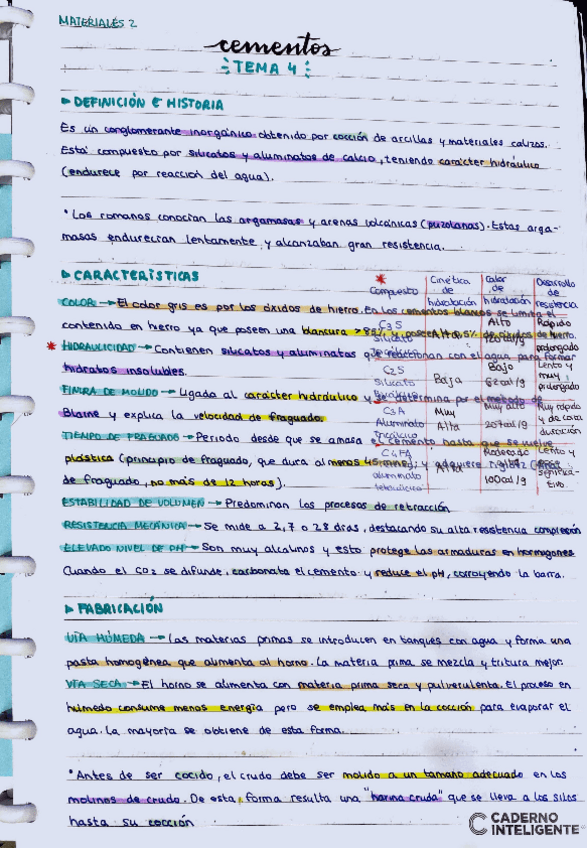 MATERIALES 2
cementos
TEMA 4
▶ DEFINICIÓN E HISTORIA
Es un conglomerante inorgánico obtenido por cocción de arcillas y materiales calizos.
Está compuesto por silicatos y aluminatos de calcio, teniendo carácter hidráulico
(endurece por reacción del agua).
• Los romanos conocían las argamasas y arenas volcánicas (puzolanas). Estas arga-
masas endurecían lentamente y alcanzaban gran resistencia.
▶ CARACTERÍSTICAS
COLOR → El color gris es por los óxidos de hierro. En los cementos blancos se limita el
contenido en hierro ya que poseen una blancura y poseen de hierro.
* HIDRAULICIDAD → Contienen silicatos y aluminatos que reaccionan con el agua para formar
hidratos insolubles.
FINURA DE MOLIDO → Ligada al carácter hidráulico y se determina por el método de
Blaine y explica la velocidad de fraguado.
TIEMPO DE FRAGUADO → Periodo desde que se amasa el cemento hasta que se vuelve
plástica (principio de fraguado, que dura al menos 45 y adquiere rigidez
de fraguado, no más de 12 horas).
ESTABILIDAD DE VOLUMEN → Predominan los procesos de retracción.
RESISTENCIA MECÁNICA → Se mide a 2, 7 o 28 días, destacando su alta resistencia compresión
ELEVADO NIVEL DE PH → Son muy alcalinos y esto protege las armaduras en hormigones.
Cuando el CO2 se difunde, carbonata el cemento y reduce el pH, corroyendo la barra.
*
Compuesto
Cinética de hidratación
Calor de hidratación
Desarrollo de resistencia
C3S
Silicato
Alta
Alto
Rápido
prolongado
C2S
Silicato
Baja
Bajo
62 cal/g
Lento y
muy
prolongado
C3A
Aluminato
Tricálcico
Muy
Alta
Muy alto
207 cal/g
Muy rápido
y de corta
duración
C4FA
aluminato
Alta
Moderado
100 cal/g
Lento y
▶ FABRICACIÓN
VÍA HÚMEDA → Las materias primas se introducen en tanques con agua y forma una
pasta homogénea que alimenta al horno. La materia prima se mezcla y tritura mejor.
VÍA SECA → El horno se alimenta con materia prima seca y pulverulenta. El proceso en
húmedo consume menos energía pero se emplea más en la cocción para evaporar el
agua. La mayoría se obtiene de esta forma.
• Antes de ser cocido, el crudo debe ser molido a un tamaño adecuado en los
molinos de crudo. De esta forma resulta una "harina cruda" que se lleva a los silos
hasta su cocción
CADERNO
INTELIGENTE